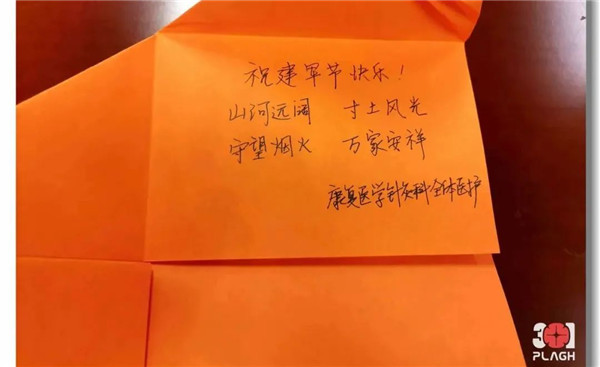 祝建军节快乐！
山河远阔 寸土风光
守望烟火 万家安祥
康复医学针灸科全体医护
301
PLAGH